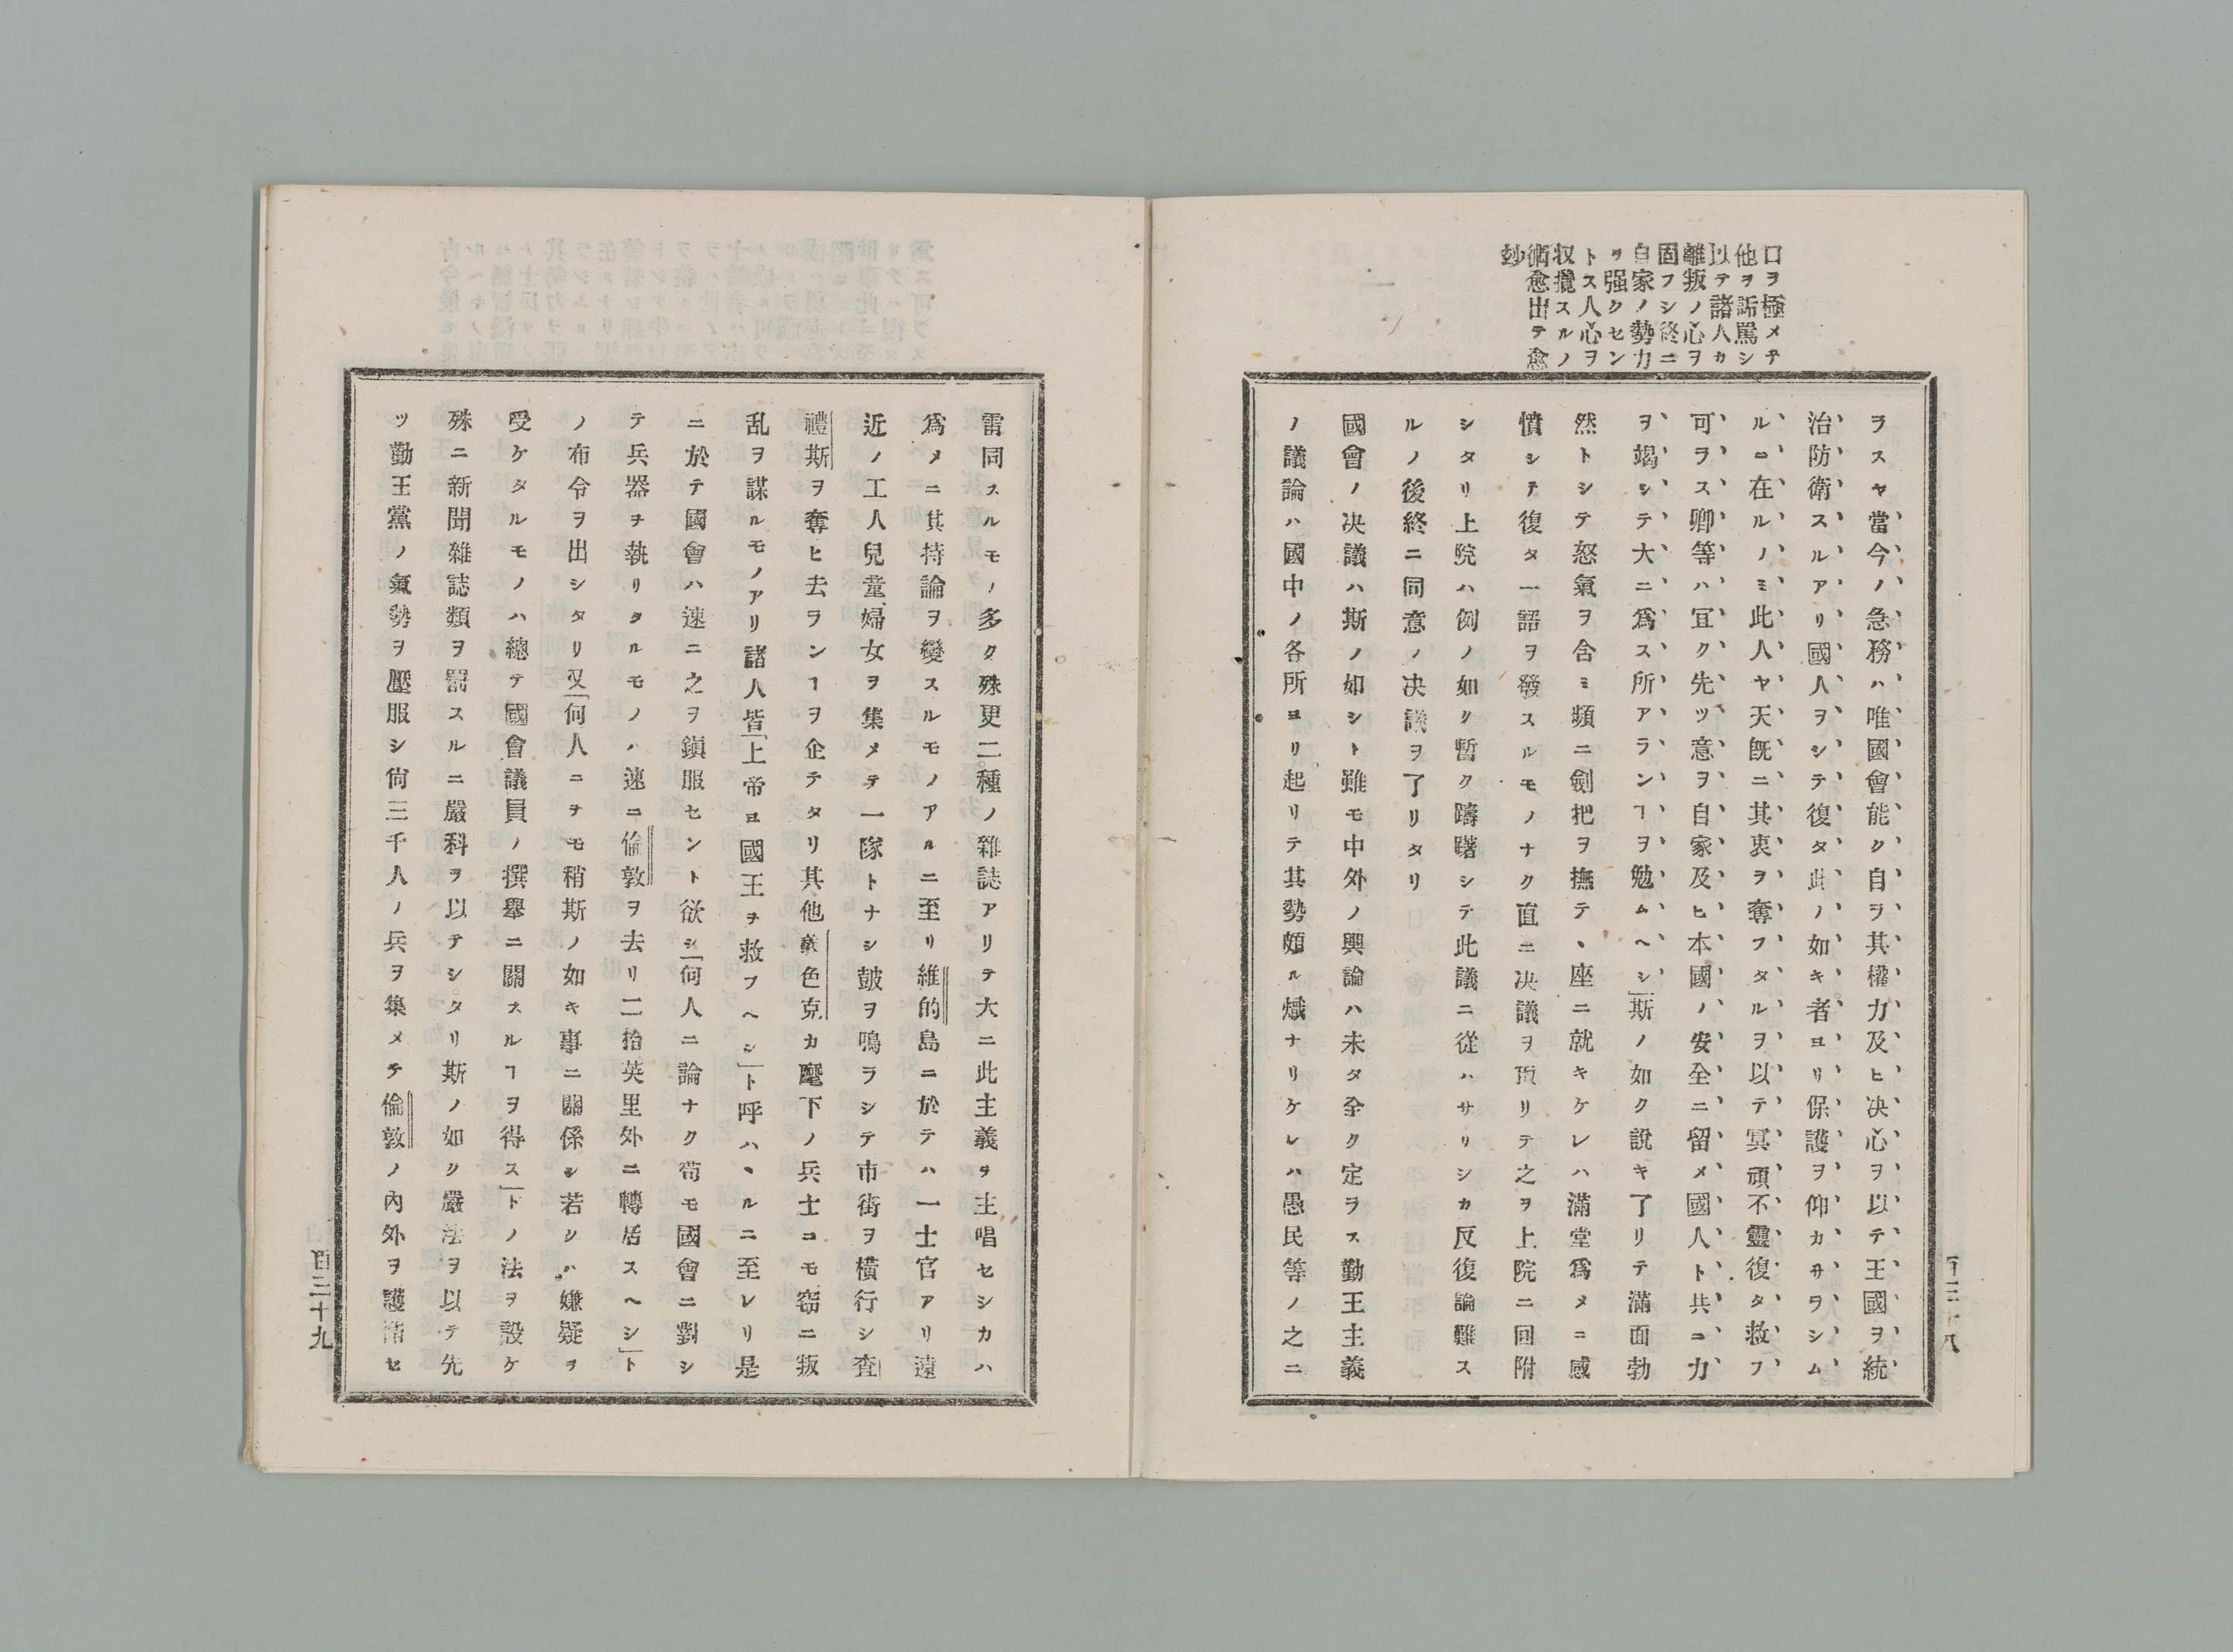 口ヲ極メテ
他ヲ詬罵シ
以テ諸人カ
離叛ノ心ヲ
固フシ終ニ
自家ノ勢力
ヲ强クセン
トス人心ヲ
収攬スルノ
術愈出テ愈
妙
ラスヤ當今ノ急務ハ唯國會能ク自ヲ其權力及ヒ决心ヲ以テ王國ヲ統
治防衛スルアリ國人ヲシテ復タ此ノ如キ者ヨリ保護ヲ仰カサラシム
ルニ在ルノミ此人ヤ天旣ニ其衷ヲ奪フタルヲ以テ冥頑不靈復タ救フ
可ヲス卿等ハ宜ク先ッ意ヲ自家及ヒ本國ノ安全ニ留メ國人ト共ニ力
ヲ竭シテ大ニ爲ス所アランヿヲ勉ムヘシ」斯ノ如ク說キ了リテ滿面勃
然トシテ怒氣ヲ含ミ頻ニ劍把ヲ撫テヽ座ニ就キケレハ滿堂爲メニ感
憤シテ復タ一語ヲ發スルモノナク直ニ决議ヲ取リテ之ヲ上院ニ回附
シタリ上院ハ例ノ如ク暫ク躊躇シテ此議ニ從ハサリシカ反復論難ス
ルノ後終ニ同意ノ决議ヲ了リタリ
國會ノ决議ハ斯ノ如シト雖モ中外ノ輿論ハ未タ全ク定ヲス勤王主義
ノ議論ハ國中ノ各所ヨリ起リテ其勢頗ル熾ナリケレハ愚民等ノ之ニ
百三十八
雷同スルモノ多ク殊更二種ノ雜誌アリテ大ニ此主義ヲ主唱セシカハ
爲メニ其持論ヲ變スルモノアルニ至リ維的島ニ於テハ一士官アリ遠
近ノ工人兒童婦女ヲ集メテ一隊トナシ皷ヲ鳴ラシテ市街ヲ横行シ査
禮斯ヲ奪ヒ去ヲンヿヲ企テタリ其他義色克カ麾下ノ兵士コモ窃ニ叛
乱ヲ謀ルモノアリ諸人皆「上帝ヨ國王ヲ救フヘシ」ト呼ハヽルニ至レリ是
ニ於テ國會ハ速ニ之ヲ鎭服セント欲シ「何人ニ論ナク苟モ國會ニ對シ
テ兵器ヲ執リタルモノハ速ニ倫敦ヲ去リ二拾英里外ニ轉居スヘシ」ト
ノ布令ヲ出シタリ又「何人ニテモ稍斯ノ如キ事ニ關係シ若シハ嫌疑ヲ
受ケタルモノハ總テ國會議員ノ撰舉ニ關スルヿヲ得ス」トノ法ヲ設ケ
殊ニ新聞雜誌類ヲ罰スルニ嚴科ヲ以テシタリ斯ノ如ク嚴法ヲ以テ先
ッ勤王黨ノ氣勢ヲ壓服シ尙三千人ノ兵ヲ集メテ倫敦ノ內外ヲ護衛セ
百三十九